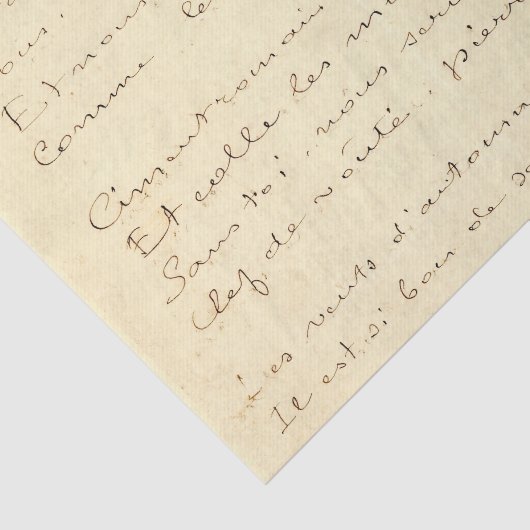 ous.
Et nous
Comme le
Ciment romain
Et scelle les m
Sans toi, nous seri
Clef de voûté, pierr
Les vents d'automn
Il est si bon de se